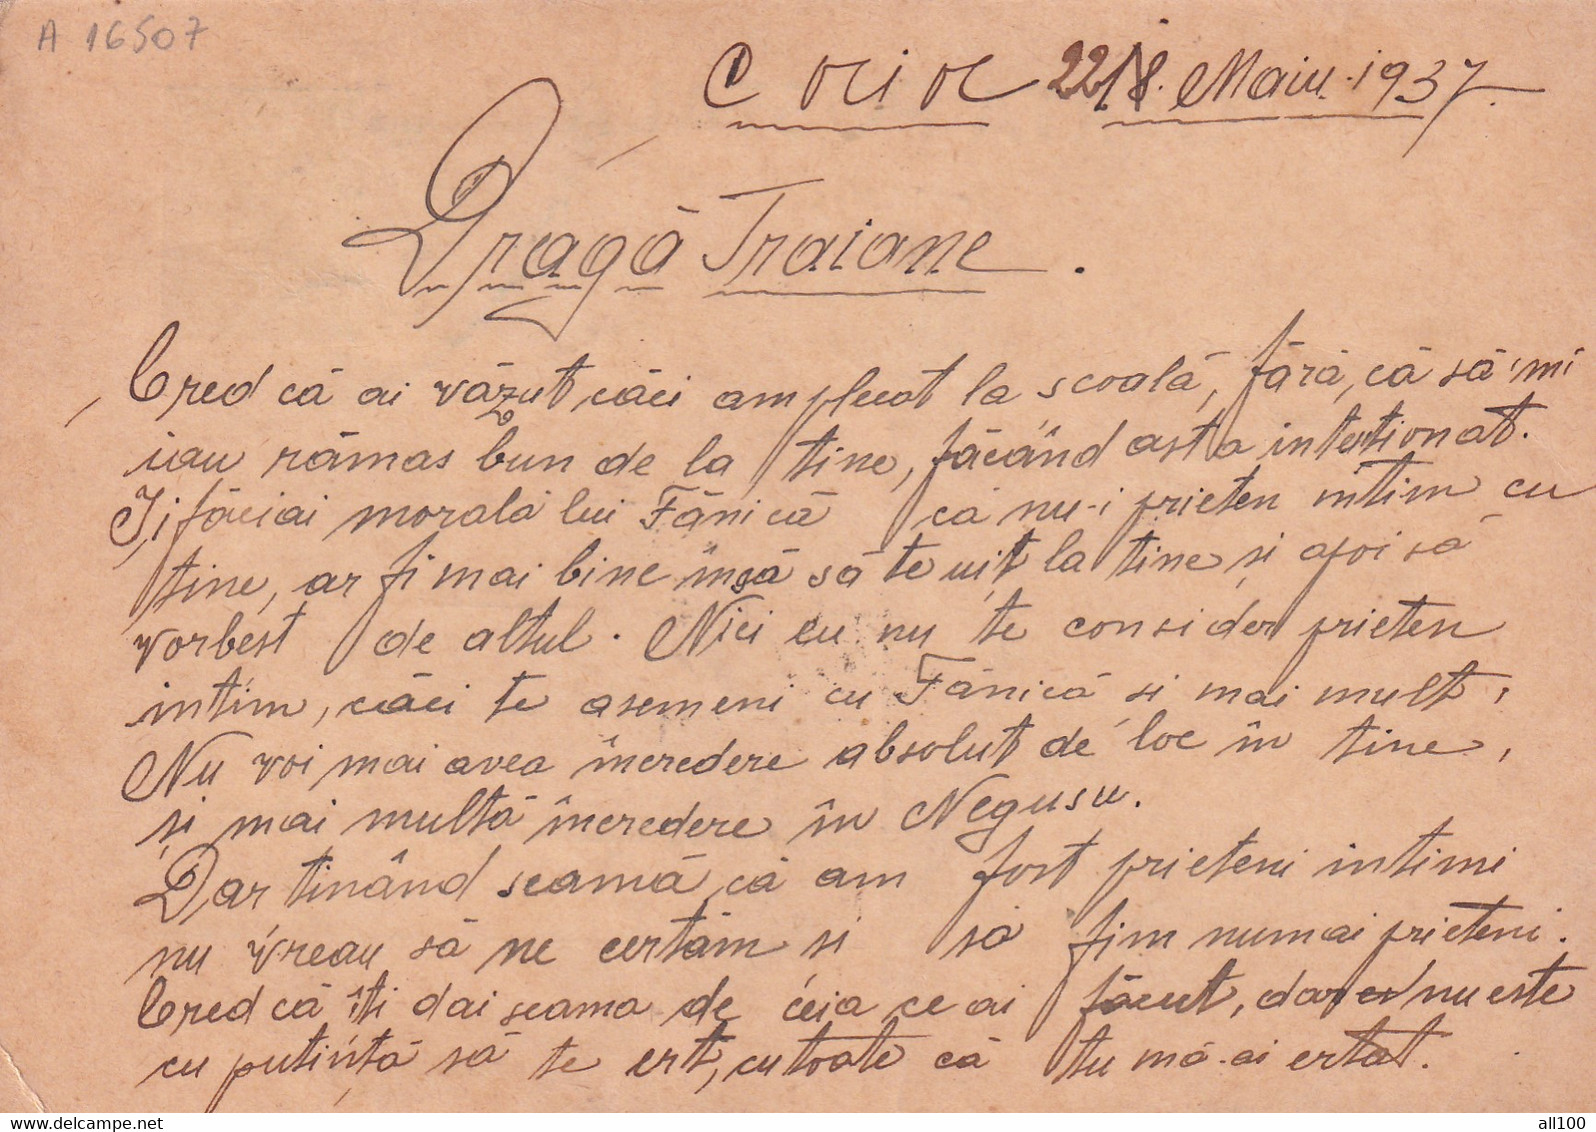 A 16507
Corior 22 18. Maiu. 1937.
Dragă Traiane.
Cred că ai văzut căci am plecat la scoală, fără, că să 'mi
iau rămas bun de la tine, făcând asta intentionat.
Ji făciai morală lui Fănică că nu-i prieten intim cu
tine, ar fi mai bine insă să te uit la tine și apoi să
vorbest de altul. Nici eu nu te consider prieten
intim, căci te asemeni cu Fănică si mai mult,
Nu voi mai avea încredere absolut de loc în tine,
și mai multă încredere în Negusu.
Dar tinând seamă că am fost prieteni intimi
nu vreau să ne certăm si să fim numai prieteni.
Cred că îti dai seama de ceia ce ai făcut, dar nu este
cu putință să te ert, cu toate că tu mă-ai ertat.
delcampe.net
all100